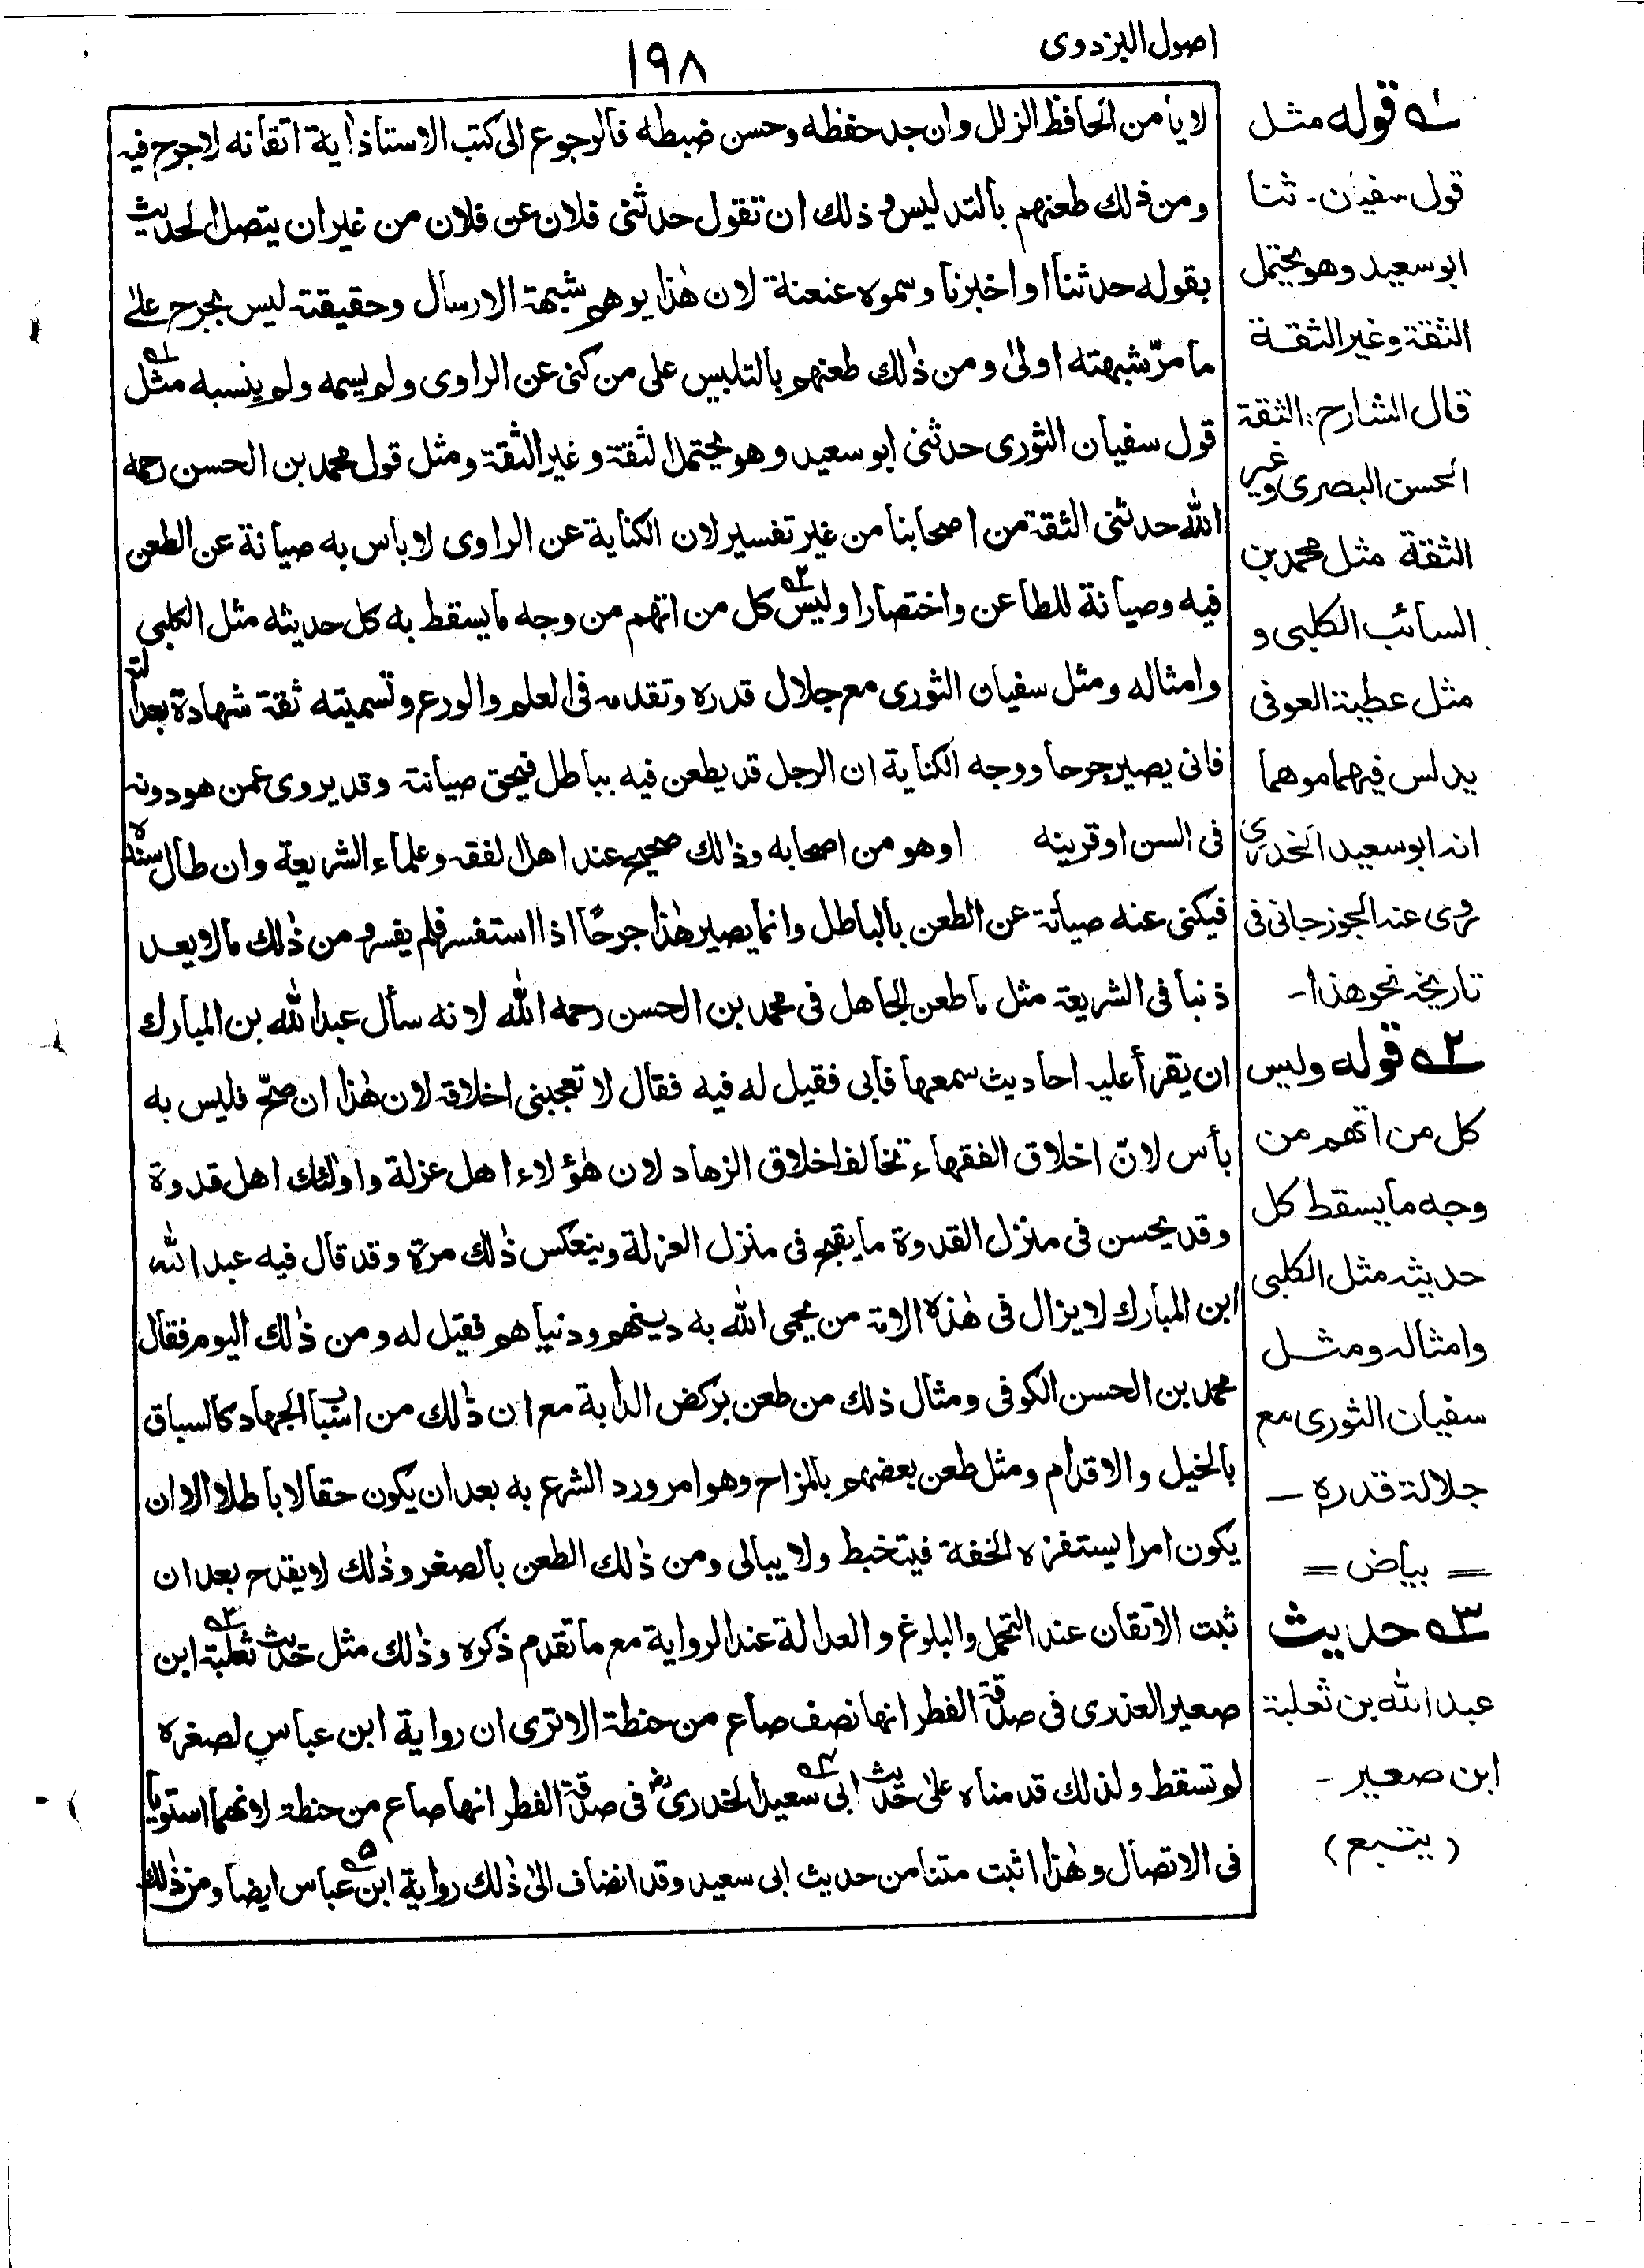 اصول البزدوی
۱۹۸
لا يأمن الحافظ الزلل وان جد حفظه وحسن ضبطه فالرجوع الى كتب الاستاذ اية اتقانه لا جرح فيه
ومن ذلك طعنهم بالتدليس و ذلك ان تقول حدثنی فلان عن فلان من غير ان يتصل الحديث
بقوله حدثنا او اخبرنا وسموه عنعنة لان هٰذا يوهم شبهة الارسال وحقيقته ليس بجرح علیٰ
ما مرّ شبهته اولیٰ ومن ذٰلك طعنهم بالتلبيس على من كنى عن الراوى ولم يسمه ولم ينسبه مثل ۱ه
قول سفيان الثورى حدثنى ابو سعيد وهو يحتمل الثقة وغير الثقة ومثل قول محمد بن الحسن رحمه
الله حدثنى الثقة من اصحابنا من غير تفسير لان الكناية عن الراوى لا باس به صيانة عن الطعن
فيه وصيانة للطاعن واختصارا وليس ۲ه كل من اتهم من وجه ما يسقط به كل حديثه مثل الكلبى
وامثاله ومثل سفيان الثورى مع جلال قدره وتقدمه فى العلم والورع وتسميته ثقة شهادة بعدالته
فانى يصير جرحا ووجه الكناية ان الرجل قد يطعن فيه بباطل فيحق صيانته وقد يروى عمن هو دونه
فى السن او قرينه او هو من اصحابه وذالك صحيح عند اهل الفقه وعلماء الشريعة وان طال سنده
فيكنى عنه صيانة عن الطعن بالباطل وانما يصير هٰذا جرحًا اذا استفسر فلم يفسر ومن ذٰلك ما لا يعد
ذنبا فى الشريعة مثل ما طعن الجاهل فى محمد بن الحسن رحمه الله لانه سأل عبد الله بن المبارك
ان يقرأ عليه احاديث سمعها فابى فقيل له فيه فقال لا تعجبنى اخلاقه لان هٰذا ان صحّ فليس به
بأس لانّ اخلاق الفقهاء تخالف اخلاق الزهاد لان هٰؤلاء اهل عزلة واولٰئك اهل قدوة
وقد يحسن فى منزل القدوة ما يقبح فى منزل العزلة وينعكس ذٰلك مرة وقد قال فيه عبد الله
ابن المبارك لا يزال فى هٰذه الامة من يحمى الله به دينهم ودنياهم فقيل له ومن ذٰلك اليوم فقال
محمد بن الحسن الكوفى ومثال ذلك من طعن بركض الدابة مع ان ذٰلك من اسباب الجهاد كالسباق
بالخيل والاقدام ومثل طعن بعضهم بالمزاح وهو امر ورد الشرع به بعد ان يكون حقا لا باطلا الا ان
يكون امرا يستفزه الخفة فيتخبط ولا يبالى ومن ذٰلك الطعن بالصغر وذٰلك لا يقدح بعد ان
ثبت الاتقان عند التحمل والبلوغ و العدالة عند الرواية مع ما تقدم ذكره وذٰلك مثل حديث ثعلبة ۳ه ابن
صعير العذرى فى صدقة الفطر انها نصف صاع من حنطة الا ترى ان رواية ابن عباس لصغره
لم تسقط ولذلك قدمناه علیٰ حديث ۴ه ابى سعيد الخدرى فى صدقة الفطر انها صاع من حنطة لانهما استويا
فى الاتصال وهٰذا اثبت متنا من حديث ابى سعيد وقد انضاف الیٰ ذٰلك رواية ابن ۵ه عباس ايضا ومن ذٰلك
۱ه قوله مثل
قول سفيان ـ ثنا
ابو سعيد وهو يحتمل
الثقة وغير الثقة
قال الشارح: الثقة
الحسن البصرى وغير
الثقة مثل محمد بن
السائب الكلبى و
مثل عطية العوفى
يدلس فيهما موهما
انه ابو سعيد الخدرى
روى عند الجوزجانى فى
تاريخه نحو هذا ـ
۲ه قوله وليس
كل من اتهم من
وجه ما يسقط كل
حديثه مثل الكلبى
وامثاله ومثل
سفيان الثورى مع
جلالة قدره ـ
= بياض =
۳ه حديث
عبد الله بن ثعلبة
ابن صعير ـ
(يتبع)